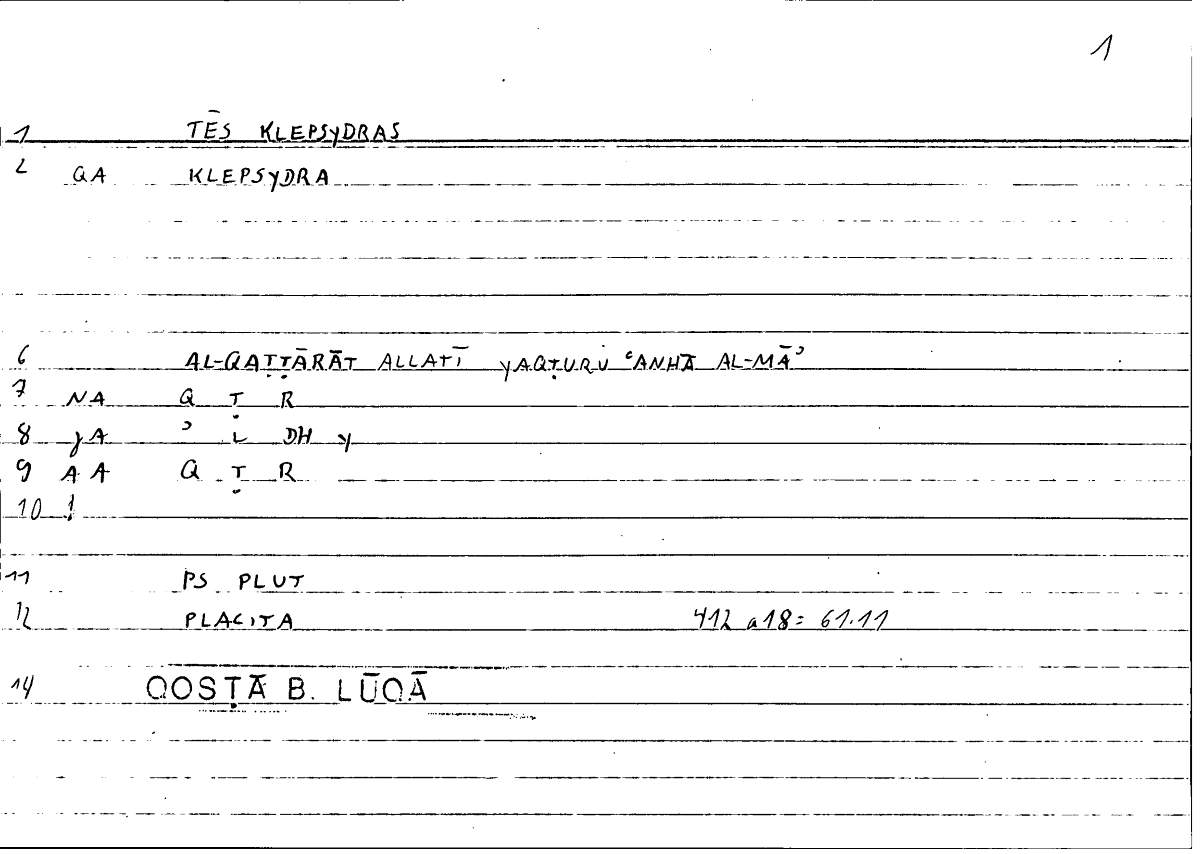 1
1 TĒS KLEPSYDRAS
2 QA KLEPSYDRA
6 AL-QAṬṬĀRĀT ALLATĪ YAQṬURU ʿANHĀ AL-MĀʾ
7 NA Q Ṭ R
8 JA ʾ L DH Y
9 AA Q Ṭ R
10 !
11 PS PLUT
12 PLACITA 412 a18 = 61.11
14 QOSṬĀ B. LŪQĀ